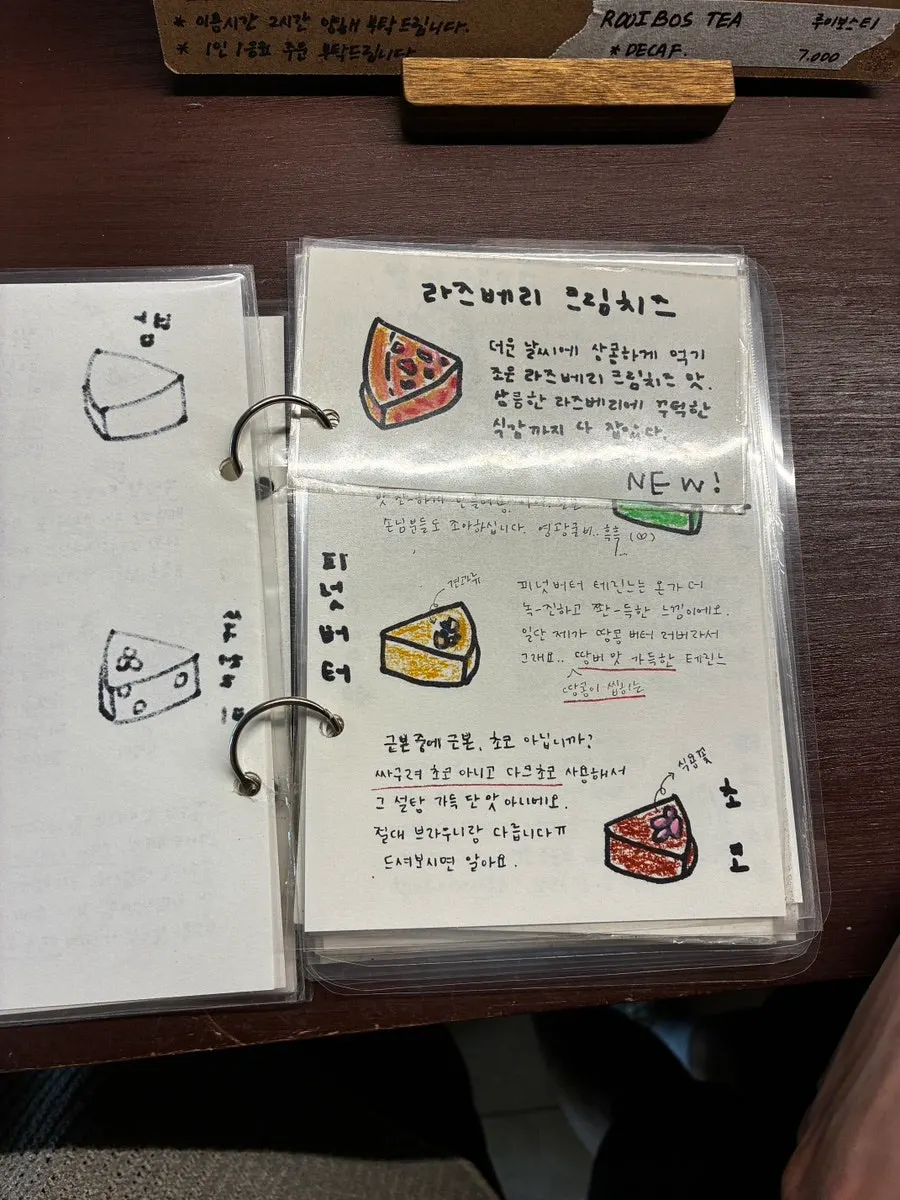 * 이용시간 2시간 양해 부탁드립니다.
* 1인 1음료 주문 부탁드립니다
ROOIBOS TEA 루이보스티
* DECAF. 7.000
라즈베리 크림치즈
더운 날씨에 상콤하게 먹기
조은 라즈베리 크림치즈 맛.
상큼한 라즈베리에 꾸덕한
식감까지 다 잡았다.
NEW!
손님분들도 조아하십니다. 영광굴비.. 흑흑
피넛버터
견과류
피넛버터 테린느는 온가 더
녹-진하고 짠-득한 느낌이에오.
일단 제가 땅콩 버터 러버라서
그래요.. 땅버 맛 가득한 테린느
땅콩이 씹히는
근본중에 근본, 초코 아닙니까?
싸구려 초코 아니고 다크초코 사용해서
그 설탕 가득 단 맛 아니에오.
절대 브라우니랑 다릅니다ㅠ
드셔보시면 알아요.
식용꽃
초코